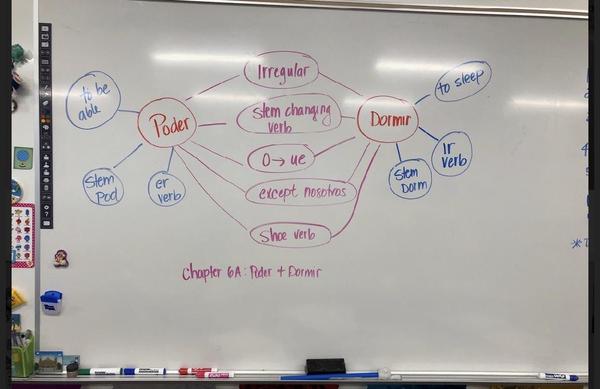 Irregular
to be
able
to sleep
Poder
Stem changing
verb
Dormir
O→ue
Ir
verb
Stem
Pod
er
verb
Stem
Dorm
except nosotros
Shoe verb
Chapter 6A: Poder + Dormir